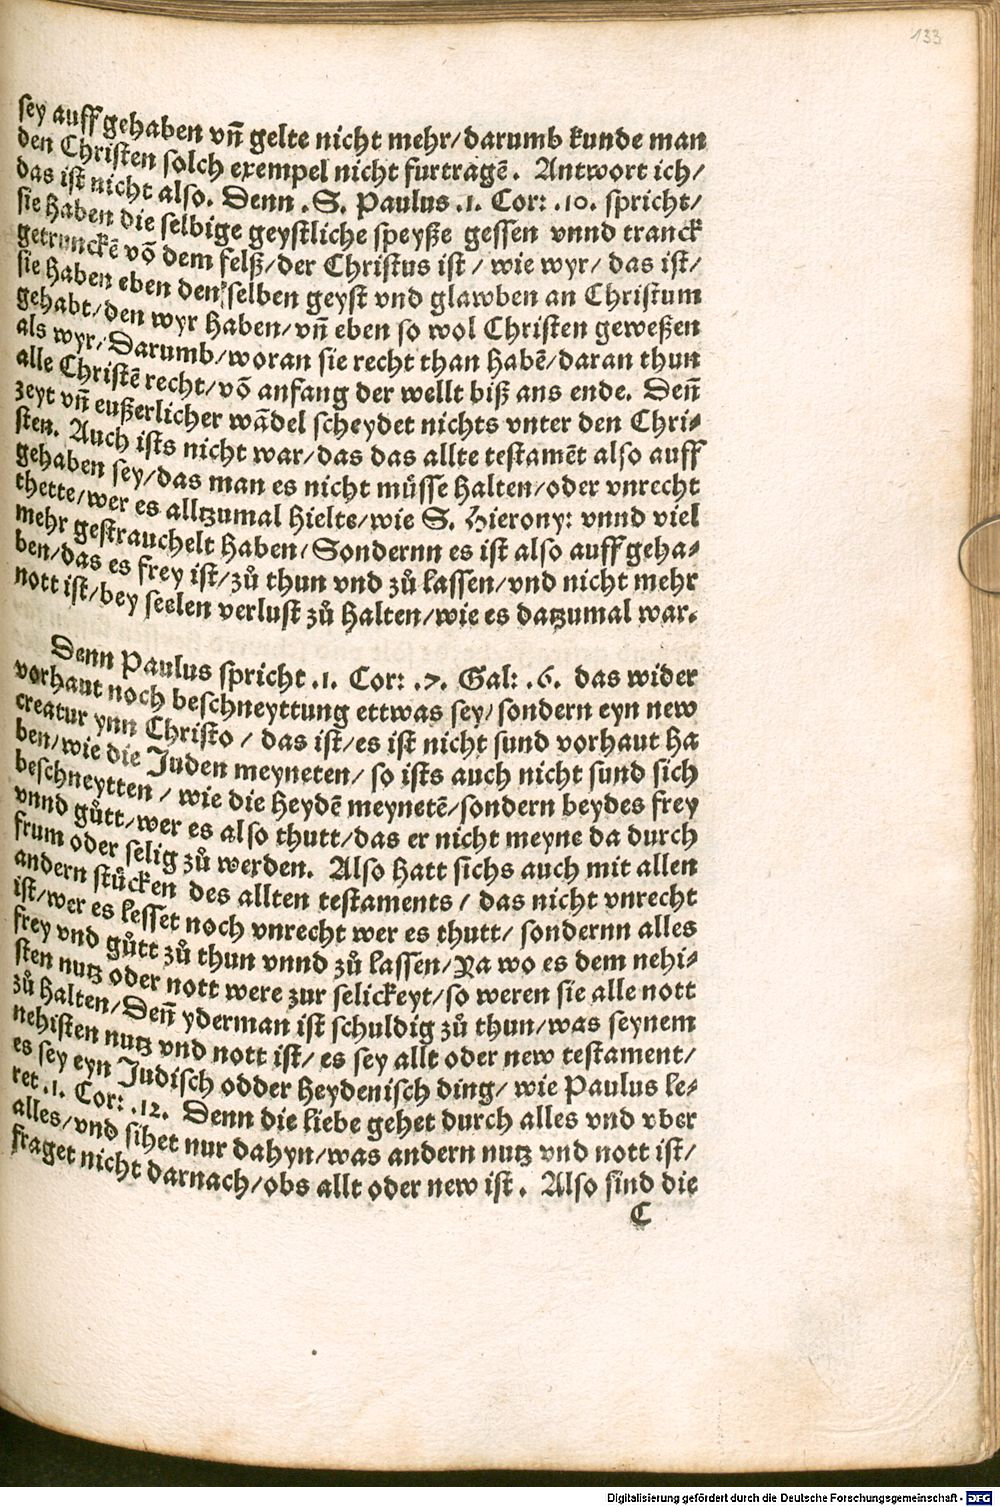 133
sey auff gehaben vñ gelte nicht mehr/darumb kunde man
den Christen solch exempel nicht furtragē. Antwort ich/
das ist nicht also. Denn .S. Paulus .1. Cor: .10. spricht/
sie haben die selbige geystliche speyße gessen vnnd tranck
getrunckē võ dem felß/der Christus ist / wie wyr/ das ist/
sie haben eben den selben geyst vnd glawben an Christum
gehabt/den wyr haben/vñ eben so wol Christen geweßen
als wyr/Darumb/woran sie recht than habē/daran thun
alle Christē recht/võ anfang der wellt biß ans ende. Deñ
zeyt vñ eußerlicher wãdel scheydet nichts vnter den Chri-
sten. Auch ists nicht war/das das allte testamēt also auff
gehaben sey/das man es nicht müsse halten/oder vnrecht
thette/wer es alltzumal hielte/wie S. Hierony: vnnd viel
mehr gestrauchelt haben/Sondernn es ist also auff geha-
ben/das es frey ist/zů thun vnd zů lassen/vnd nicht mehr
nott ist/bey seelen verlust zů halten/wie es datzumal war.
Denn Paulus spricht .1. Cor: .7. Gal: .6. das wider
vorhaut noch beschneyttung ettwas sey/sondern eyn new
creatur ynn Christo / das ist/es ist nicht sund vorhaut ha
ben/wie die Juden meyneten/ so ists auch nicht sund sich
beschneytten / wie die Heydē meynetē/sondern beydes frey
vnnd gůtt/wer es also thutt/das er nicht meyne da durch
frum oder selig zů werden. Also hatt sichs auch mit allen
andern stücken des allten testaments / das nicht vnrecht
ist/wer es lesset noch vnrecht wer es thutt/ sondernn alles
frey vnd gůtt zů thun vnnd zů lassen/Ya wo es dem nehi-
sten nutz oder nott were zur selickeyt/so weren sie alle nott
zů halten/Deñ yderman ist schuldig zů thun/was seynem
nehisten nutz vnd nott ist/ es sey allt oder new testament/
es sey eyn Judisch odder Heydenisch ding/ wie Paulus le-
ret .1. Cor: .12. Denn die liebe gehet durch alles vnd vber
alles/vnd sihet nur dahyn/was andern nutz vnd nott ist/
fraget nicht darnach/obs allt oder new ist. Also sind die
C
Digitalisierung gefördert durch die Deutsche Forschungsgemeinschaft - DFG